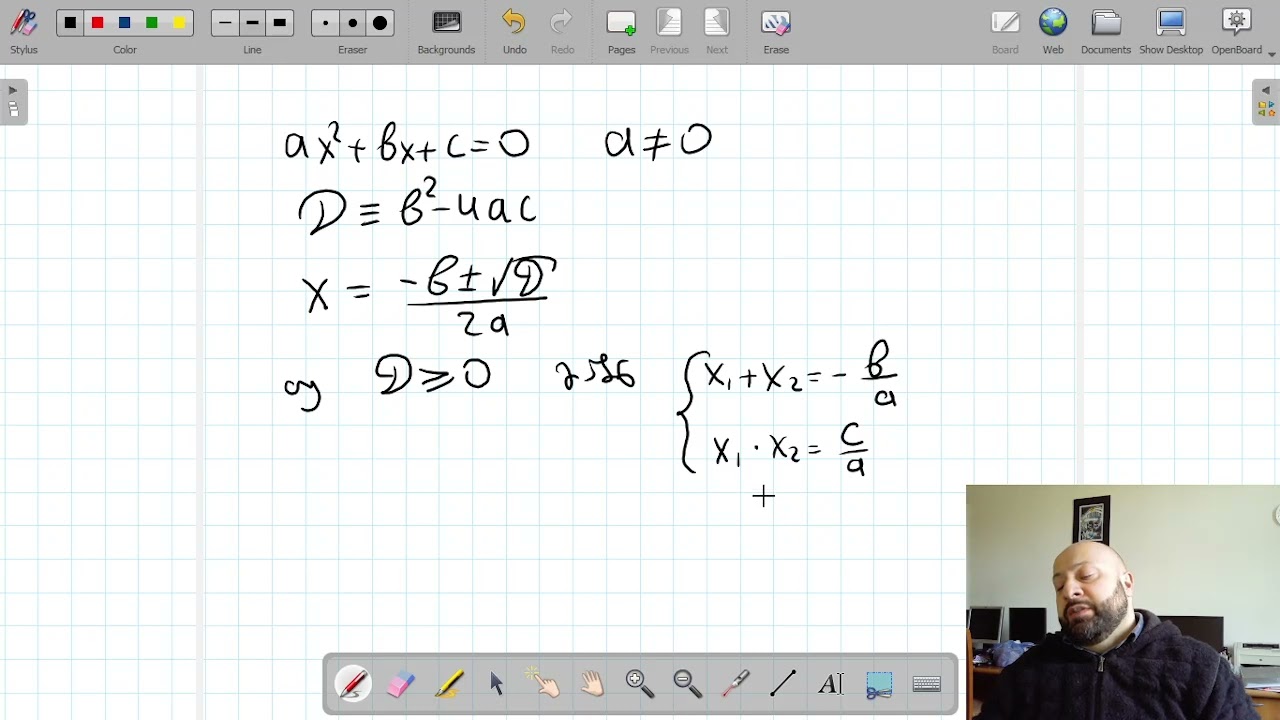 Stylus Color Line Eraser Backgrounds Undo Redo Pages Previous Next Erase Board Web Documents Show Desktop OpenBoard
ax²+bx+c=0 a≠0
D≡b²-4ac
x = (-b±√D)/(2a)
თუ D≥0
x₁+x₂=-b/a
x₁·x₂=c/a